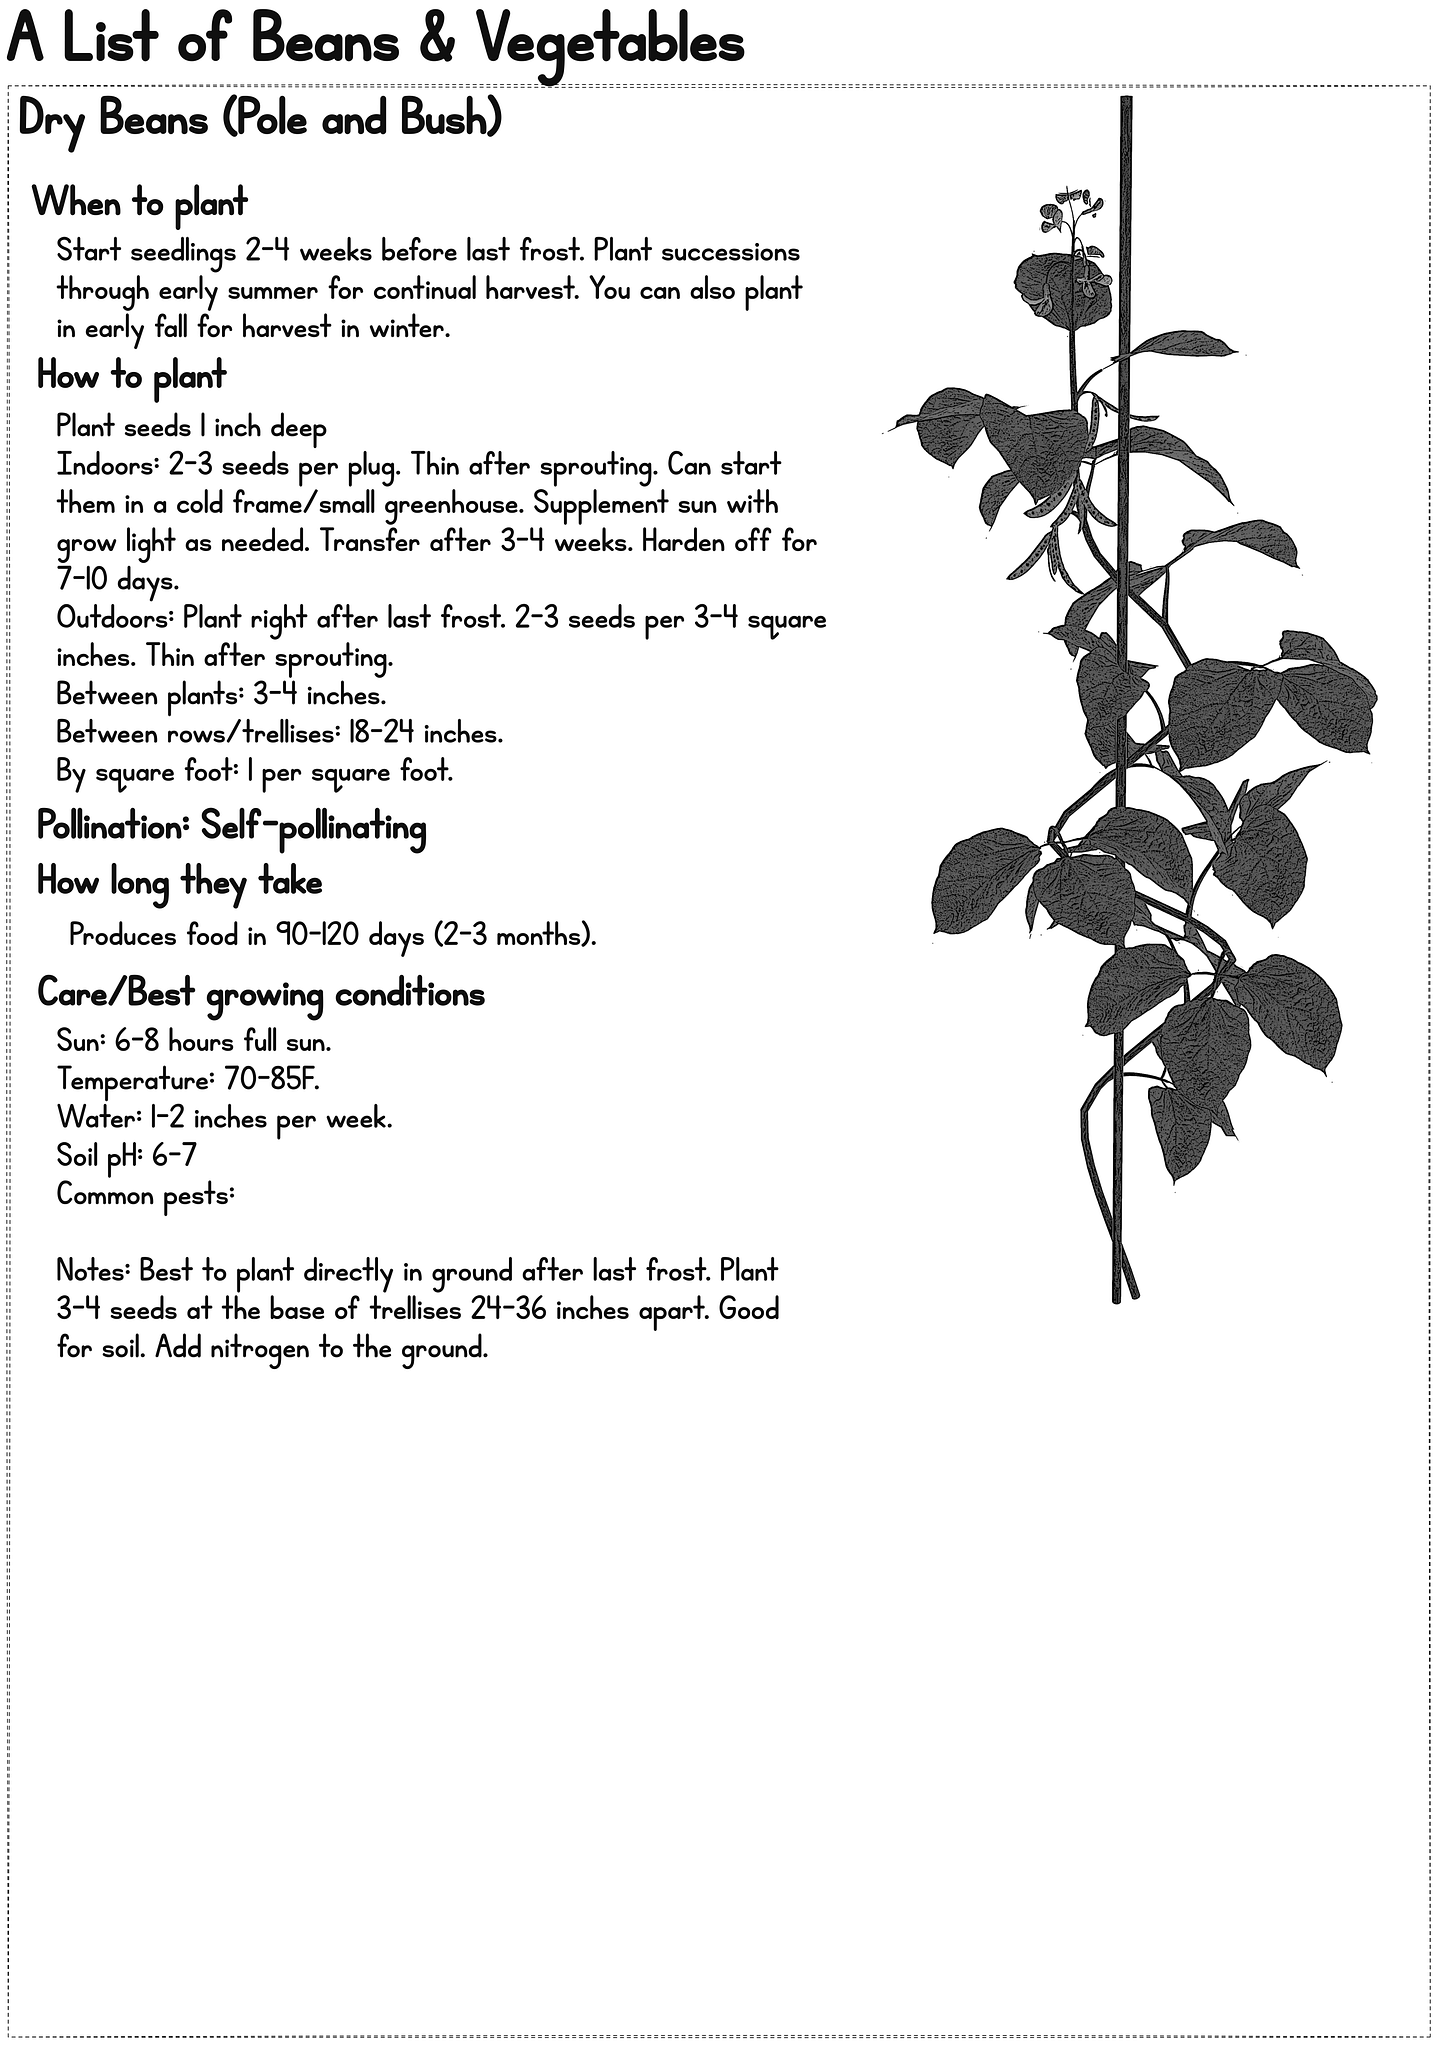 A List of Beans & Vegetables
Dry Beans (Pole and Bush)
When to plant
Start seedlings 2-4 weeks before last frost. Plant successions
through early summer for continual harvest. You can also plant
in early fall for harvest in winter.
How to plant
Plant seeds 1 inch deep
Indoors: 2-3 seeds per plug. Thin after sprouting. Can start
them in a cold frame/small greenhouse. Supplement sun with
grow light as needed. Transfer after 3-4 weeks. Harden off for
7-10 days.
Outdoors: Plant right after last frost. 2-3 seeds per 3-4 square
inches. Thin after sprouting.
Between plants: 3-4 inches.
Between rows/trellises: 18-24 inches.
By square foot: 1 per square foot.
Pollination: Self-pollinating
How long they take
Produces food in 90-120 days (2-3 months).
Care/Best growing conditions
Sun: 6-8 hours full sun.
Temperature: 70-85F.
Water: 1-2 inches per week.
Soil pH: 6-7
Common pests:
Notes: Best to plant directly in ground after last frost. Plant
3-4 seeds at the base of trellises 24-36 inches apart. Good
for soil. Add nitrogen to the ground.